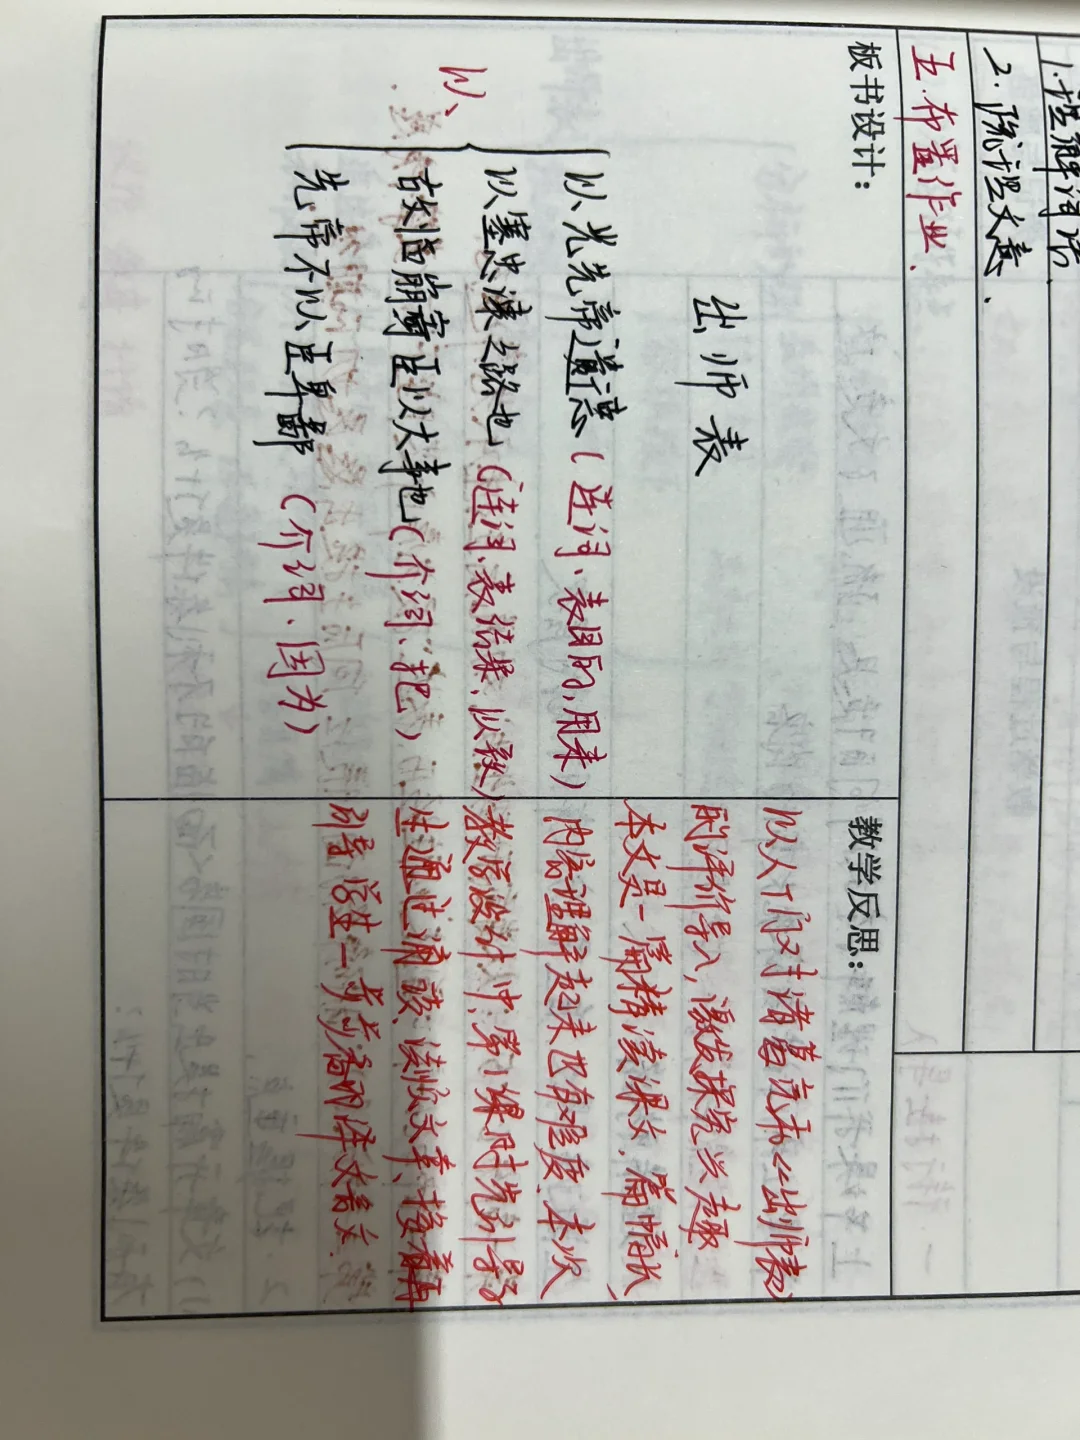 1.理解词语.
2.疏理文意.
五.布置作业.
板书设计:
出师表
以、
以光先帝遗德(连词、表目的,用来)
以塞忠谏之路也(连词、表结果,以致)
故临崩寄臣以大事也(介词、把)
先帝不以臣卑鄙(介词、因为)
教学反思:
以人们对诸葛亮和《出师表》
的评价导入,激发探究兴趣
本文是一篇精读课文,篇幅长,
内容理解起来也有难度.本次
教学设计中,第一课时先引导学
生通过诵读、读顺文章,接着再
引导学生一步步看明译文有关.